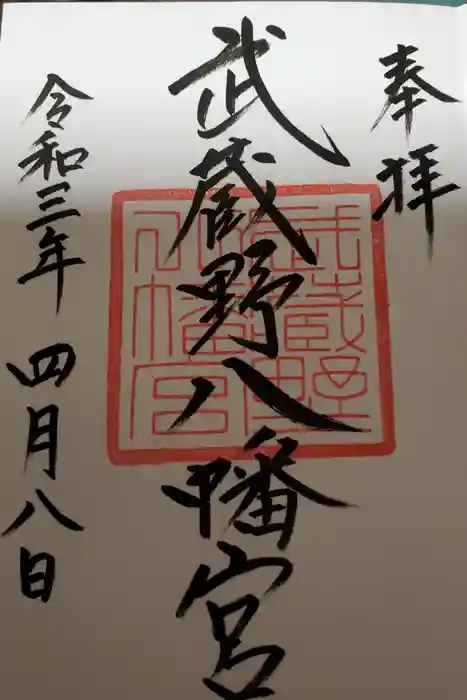 奉拝
武蔵野八幡宮
令和三年四月八日
武蔵野
八幡宮